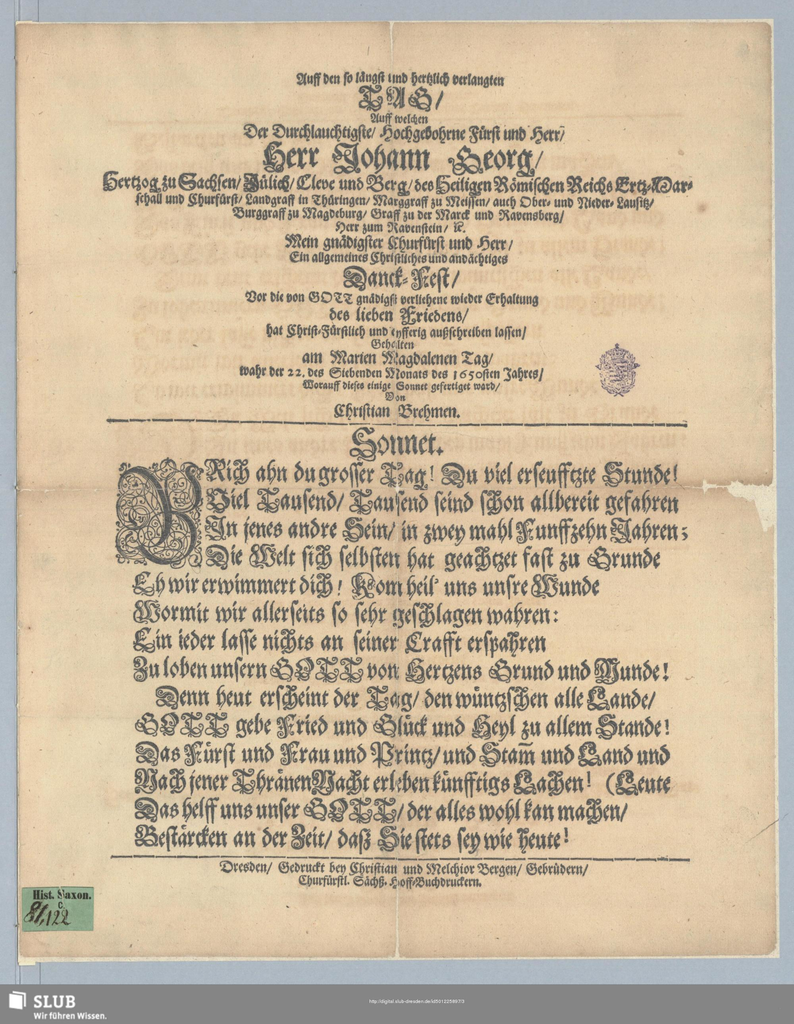 Auff den so längst und hertzlich verlangten
TAG/
Auff welchen
Der Durchlauchtigste/ Hochgebohrne Fürst und Herr/
Herr Johann Georg/
Hertzog zu Sachsen/ Jülich/ Cleve und Berg/ des Heiligen Römischen Reichs Ertz-Mar-
schall und Churfürst/ Landgraff in Thüringen/ Marggraff zu Meissen/ auch Ober- und Nieder- Lausitz/
Burggraff zu Magdeburg/ Graff zu der Marck und Ravensberg/
Herr zum Ravenstein/ ꝛc.
Mein gnädigster Churfürst und Herr/
Ein allgemeines Christliches und andächtiges
Danck-Fest/
Vor die von GOTT gnädigst verliehene wieder Erhaltung
des lieben Friedens/
hat Christ-Fürstlich und eyfferig außschreiben lassen/
Gehalten
am Marien Magdalenen Tag/
wahr der 22. des Siebenden Monats des 1650sten Jahres/
Worauff dieses einige Sonnet gefertiget ward/
Von
Christian Brehmen.
Sonnet.
BRich ahn du grosser Tag! Du viel erseufftzte Stunde!
Viel Tausend/ Tausend seind schon allbereit gefahren
In jenes andre Sein/ in zwey mahl Funffzehn Jahren;
Die Welt sich selbsten hat geachtzet fast zu Grunde
Eh wir erwimmert dich! Kom heil' uns unsre Wunde
Wormit wir allerseits so sehr geschlagen wahren:
Ein ieder lasse nichts an seiner Crafft erspahren
Zu loben unsern GOTT von Hertzens Grund und Munde!
Denn heut erscheint der Tag/ den wüntzschen alle Lande/
GOTT gebe Fried und Glück und Heyl zu allem Stande!
Das Fürst und Frau und Printz/ und Stam̃ und Land und
Nach jener Thränen Nacht erleben künfftigs Lachen! (Leute
Das helff uns unser GOTT/ der alles wohl kan machen/
Bestärcken an der Zeit/ daß Sie stets sey wie heute!
Dresden/ Gedruckt bey Christian und Melchior Bergen/ Gebrüdern/
Churfürstl. Sächß. Hoff-Buchdruckern.
Hist. Saxon.
C.
81,122
SLUB
Wir führen Wissen.